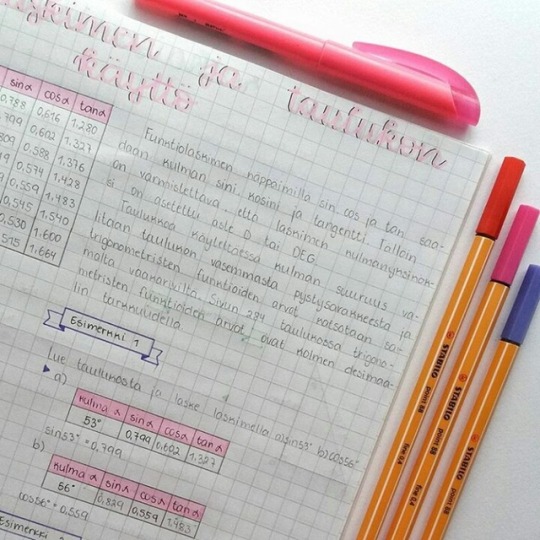 laskimen ja taulukon
käyttö
sin α cos α tan α
0.788 0,616 1.280
.799 0,602 1.327
809 0,588 1.376
19 0,574 1.428
9 0,559 1.483
0.545 1.540
0.530 1.600
515 1.664
Funktiolaskimen näppäimillä sin cos ja tan saa-
daan kulman sini, kosini ja tangentti. Tällöin
on varmistettava, että laskimen kulmanyksinök-
si on asetettu aste D tai DEG.
Taulukkoa käytettäessä kulman suuruus va-
litaan taulukon vasemmasta pystysarakkeesta ja
trigonometristen funktioiden arvot katsotaan sa-
malta vaakariviltä. Sivun 294 taulukossa trigono-
metristen funktioiden arvot ovat kolmen desimaa-
lin tarkkuudella.
Esimerkki 1
Lue taulukosta ja laske laskimella a) sin53° b) cos56°
a)
kulma α sin α cos α tan α
53° 0,799 0,602 1.327
sin53° ≈ 0,799
b)
kulma α sin α cos α tan α
56° 0,829 0,559 1.483
cos56° ≈ 0,559
Esimerkki 2
STABILO point 88 fine 0,4
STABILO point 88 fine 0,4
STABILO point 88